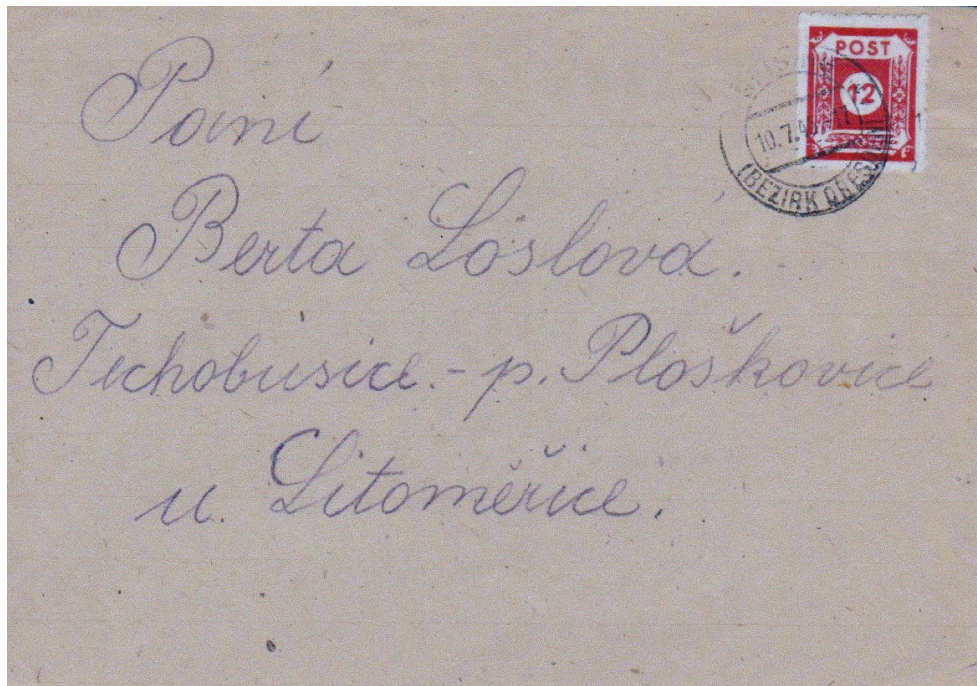 POST
12
10.7.4
(BEZIRK DRESDEN)
Paní
Berta Löslová.
Techobusice.-p. Ploškovice
u. Litoměřice.